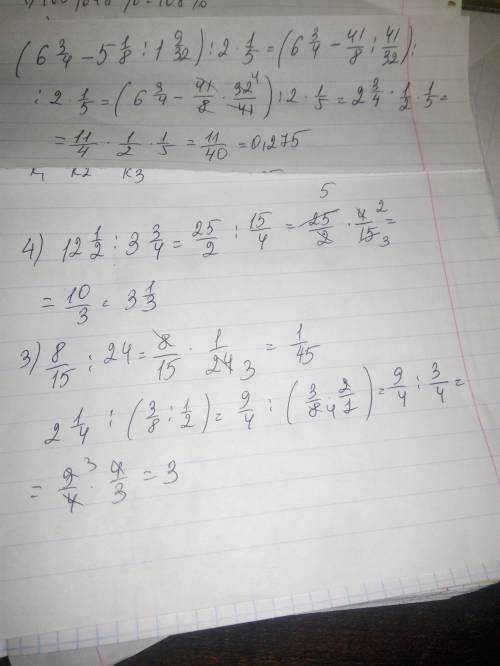 (6 3/4 − 5 1/8 : 1 9/32) : 2 · 1/5 = (6 3/4 − 41/8 : 41/32) :
: 2 · 1/5 = (6 3/4 − 41/8 · 32/41 4) : 2 · 1/5 = 2 3/4 · 1/2 · 1/5 =
= 11/4 · 1/2 · 1/5 = 11/40 = 0,275
к2 к3
4) 12 1/2 : 3 3/4 = 25/2 : 15/4 = 5 25/2 · 4/15 2 3 =
= 10/3 = 3 1/3
3) 8/15 : 24 = 8/15 · 1/24 3 = 1/45
2 1/4 : (3/8 : 1/2) = 9/4 : (3/8 4 · 2/1) = 9/4 : 3/4 =
= 9/4 3 · 4/3 = 3